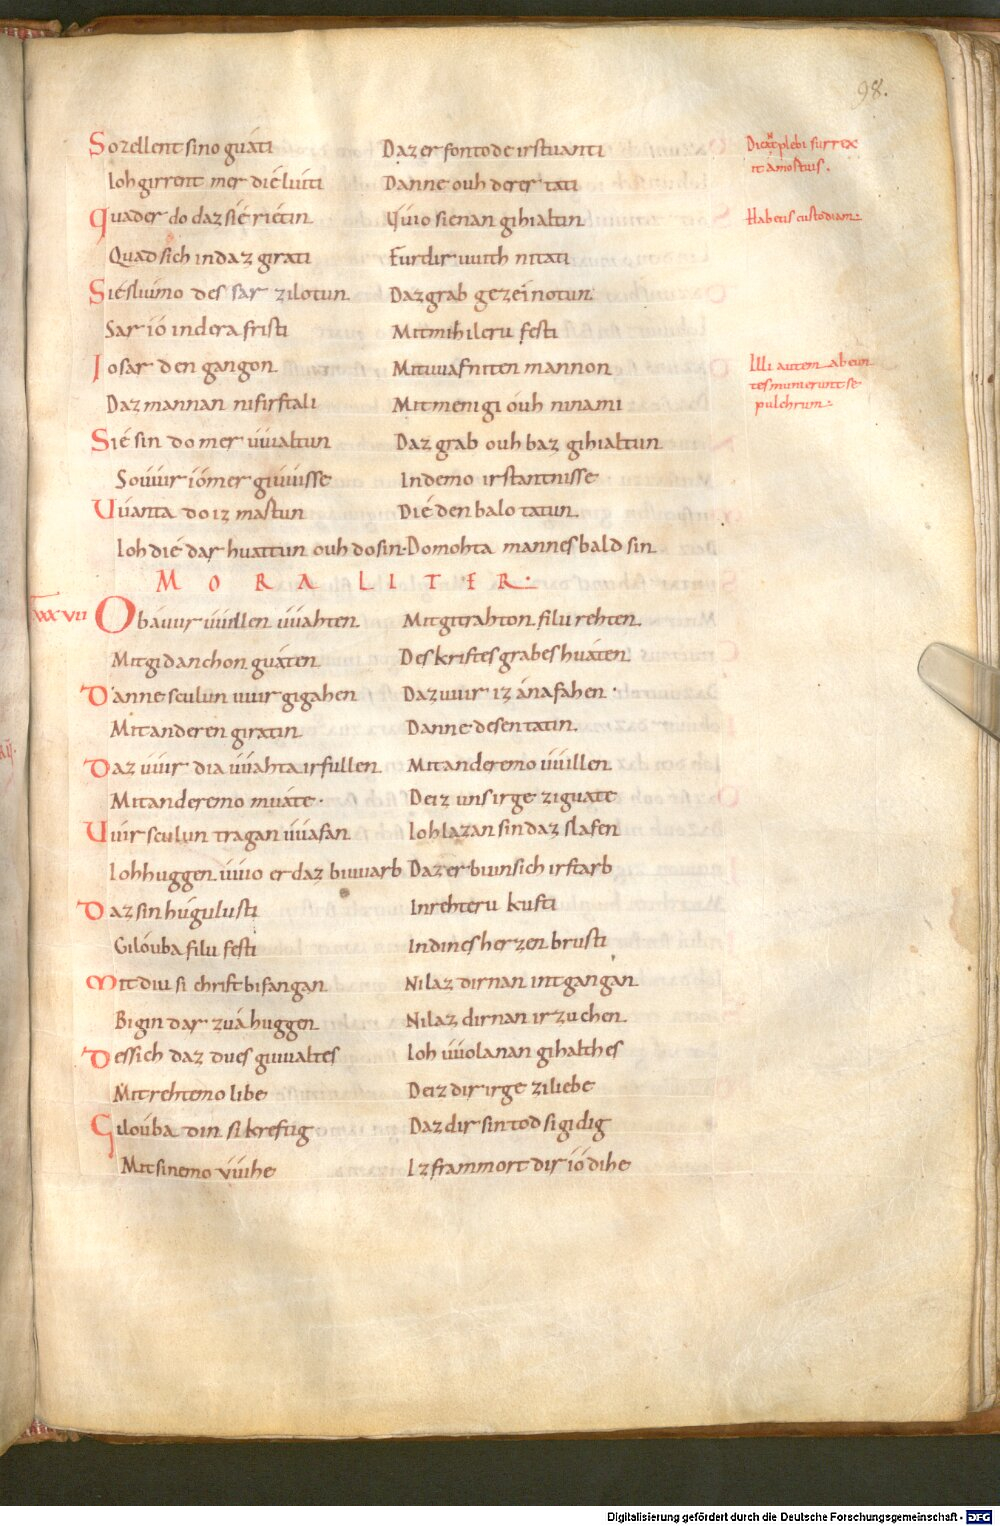 98.
Sozellent sino guáti Daz er fon tode irstuanti
Dicant plebi surrex
it a mortuis.
Ioh girrent mer dié liuti Danne ouh derer tati
Quader do daz sié riétin Quio sie nan gihialtin
Habetis custodiam
Quad sich in daz girati Furdir uuith nitati
Siésliumo des sar zilotun Daz grab gezeinotun
Sar ió in dera fristi Mit mihileru festi
Iosar den gangon Mit uuafniten mannon
Illi autem abeun
tes munierunt se
pulchrum
Daz mannan nifirstali Mit menigi óuh ninami
Sié sin do mer uuialtun Daz grab ouh baz gihialtun
So uuir iómer giuuisse In demo irstantnisse
Uuanta do iz mastun Dié den balo tatun.
Ioh dié dar huattun ouh do sin Do mohta mannes bald sin
MORALITER.
XXXVII Obáuur uuillen uuahten Mit gitrahton filu rehten
Mit gidanchon guáten Des kristes grabes huáten
Danne sculun uuir gigahen Daz uuir iz ánafahen
Mit anderen giratin Danne desen tatin.
Daz uuir dia uuahta irfullen Mit anderemo uuillen
Mit anderemo muate Deiz uns irge ziguate
Uuir sculun tragan uuafan Ioh lazan sin daz slafen
Ioh huggen uuio er daz biuuarb Daz er bi unsich irstarb
Daz sin húgulusti In rehteru kusti
Gilóuba filu festi In dines herzen brusti
Mit diu si christ bifangan Ni laz dir nan intgangan
Bigin dar zuá huggen Ni laz dir nan irzuchen
Dessich daz dues giuualtes Ioh uuola nan gihaltes
Mit rehtemo libe Deiz dir irge ziliebe
Gilóuba din si kreftig Daz dir sin tod si gidig
Mit sinemo uuihe Iz frammort dir ió dihe
Digitalisierung gefördert durch die Deutsche Forschungsgemeinschaft - DFG